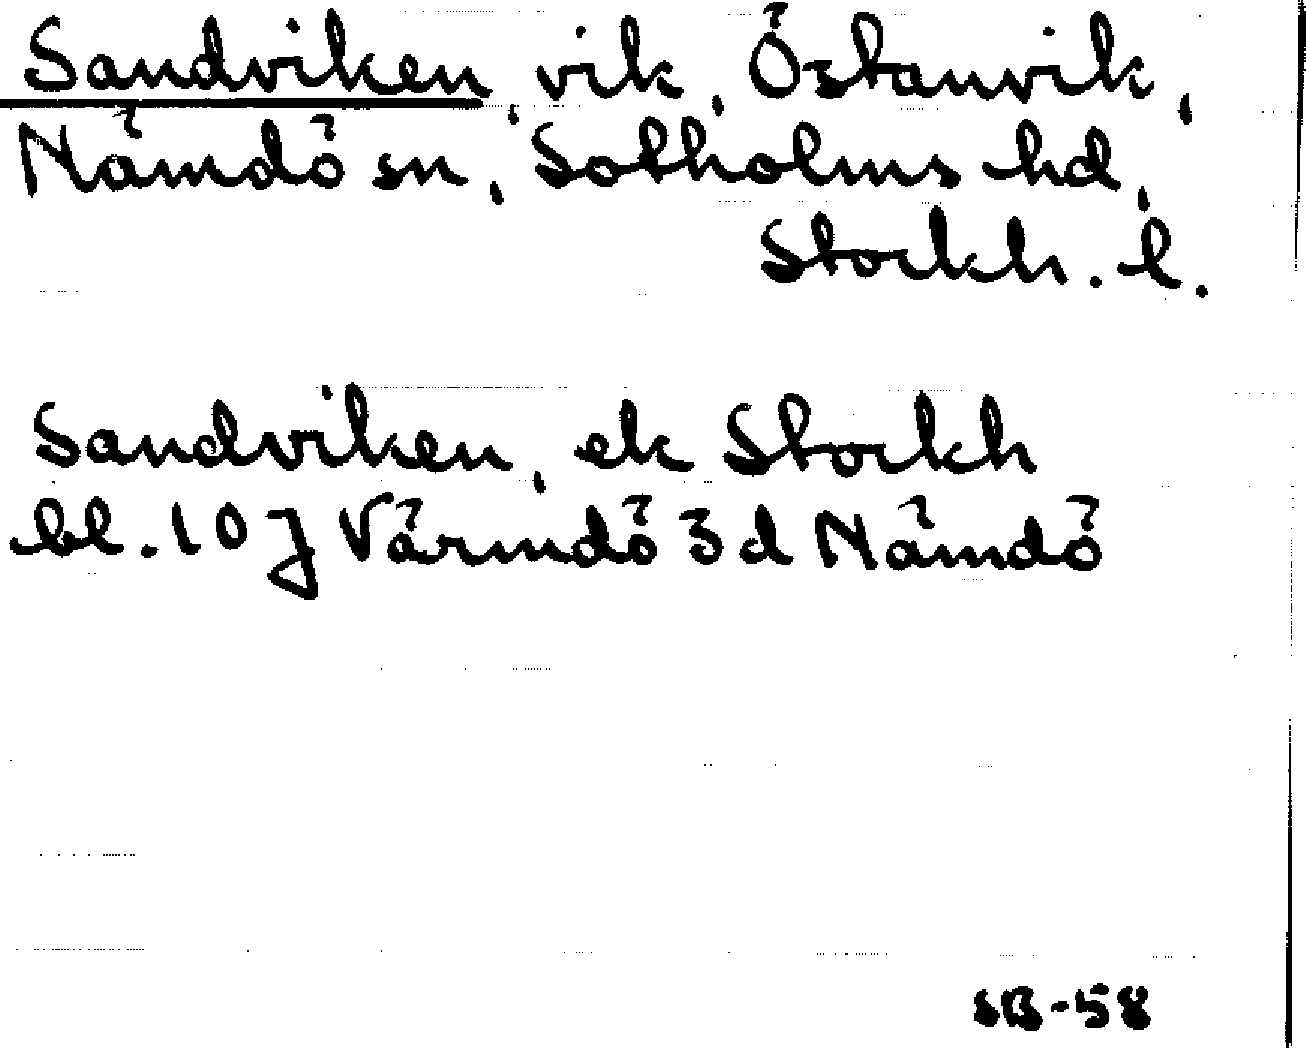 Sandviken, vik, Östanvik,
Nämdö sn, Sotholms hd,
Stockh. l.
Sandviken, ek Stockh
bl. 10 J Värmdö 3 d Nämdö
SB-58